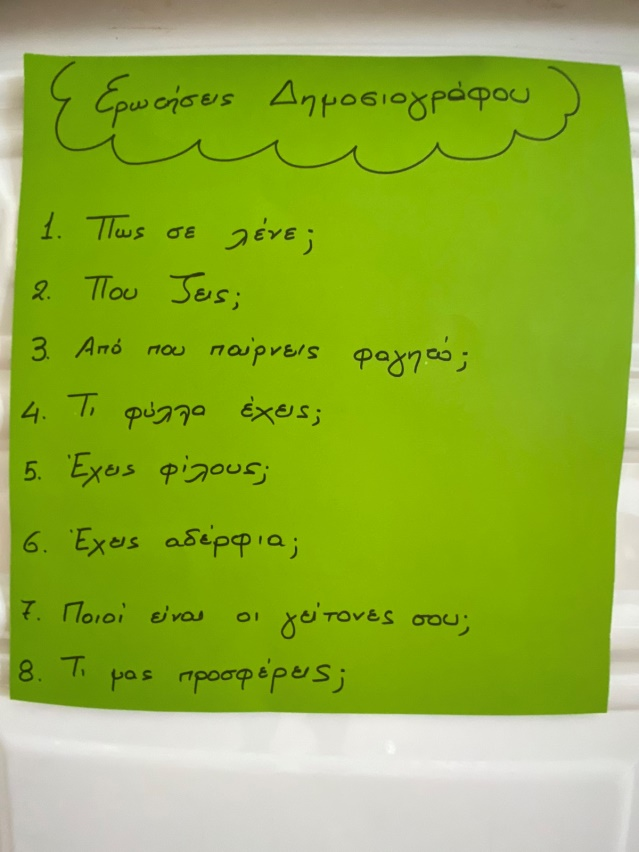 Ερωτήσεις Δημοσιογράφου
1. Πως σε λένε;
2. Που ζεις;
3. Από που παίρνεις φαγητό;
4. Τι φύλλα έχεις;
5. Έχεις φίλους;
6. Έχεις αδέρφια;
7. Ποιοί είναι οι γείτονες σου;
8. Τι μας προσφέρεις;